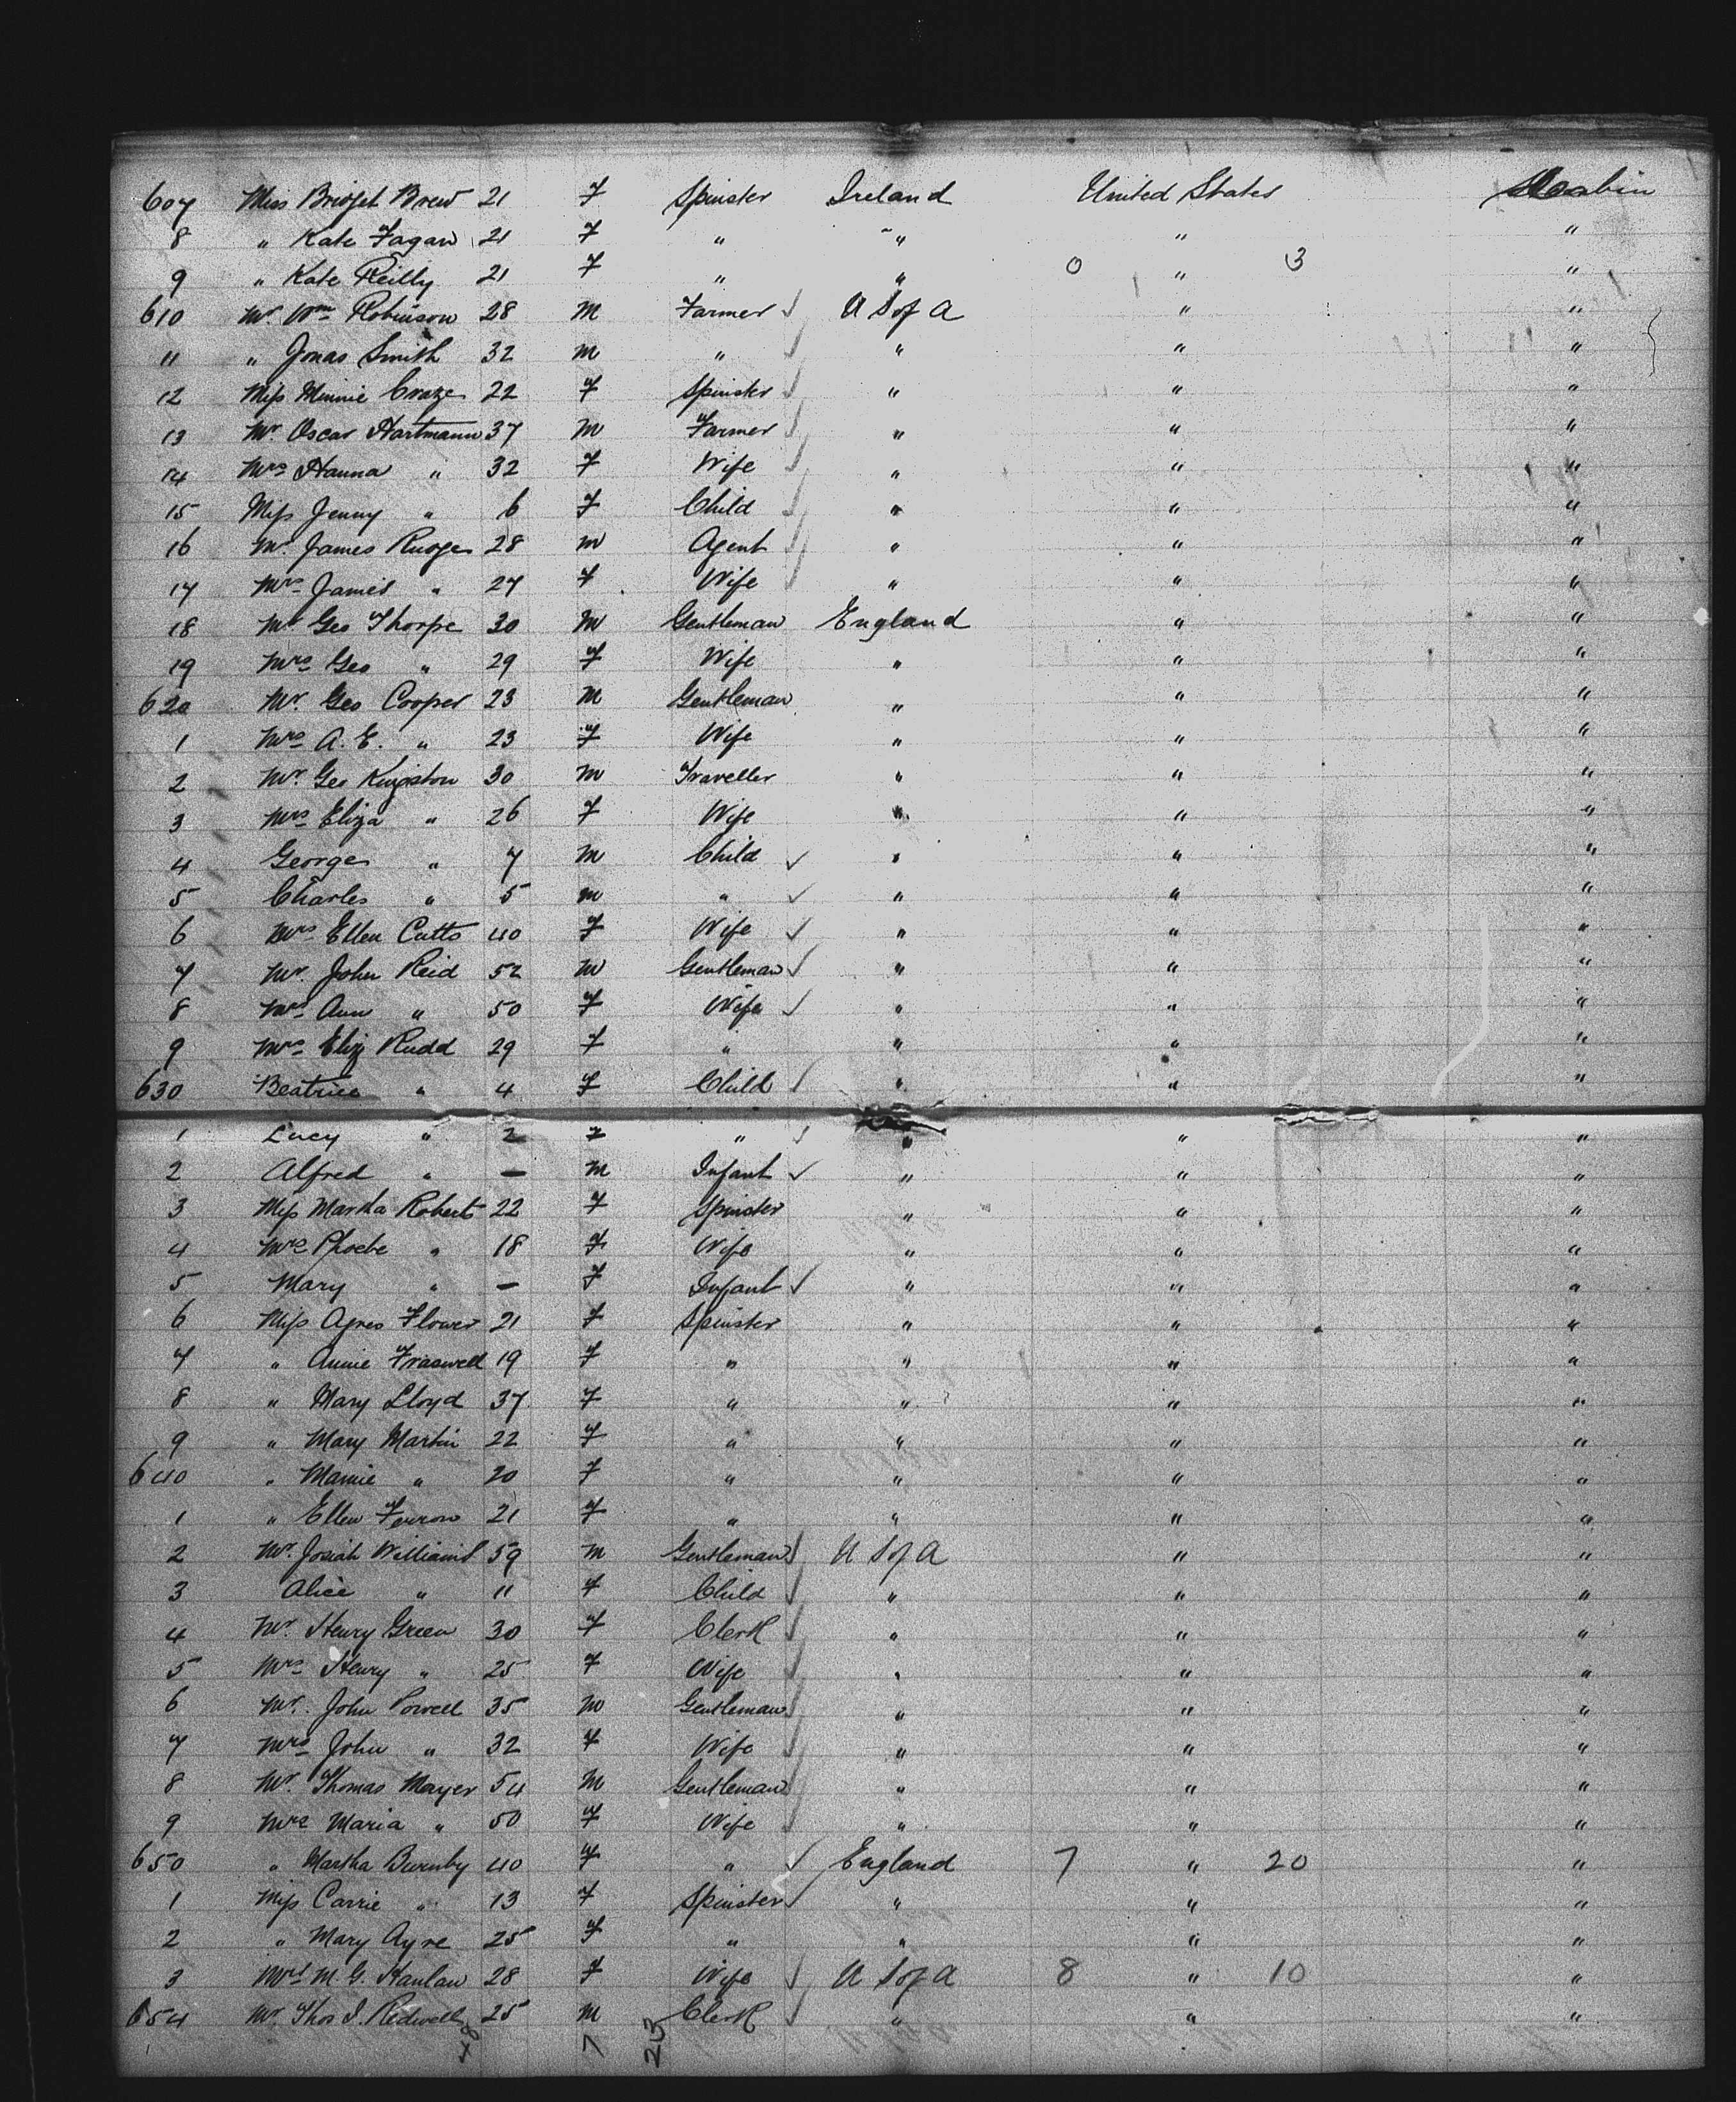 607 Miss Bridget Brew 21 F Spinster Ireland United States
8 " Kate Fagan 21 F " " " "
9 " Kate Reilly 21 F " " 0 " 3 "
610 Mr. Wm Robinson 28 M Farmer ✓ U S of A " "
11 " Jonas Smith 32 M " ✓ " " "
12 Miss Minnie Craze 22 F Spinster ✓ " " "
13 Mr. Oscar Hartmann 37 M Farmer ✓ " " "
14 Mrs Hanna " 32 F Wife ✓ " " "
15 Miss Jenny " 6 F Child ✓ " " "
16 Mr. James 28 M Agent ✓ " " "
17 Mrs James " 27 F Wife ✓ " " "
18 Mr Geo Thorpe 30 M Gentleman England " "
19 Mrs Geo " 29 F Wife " " "
620 Mr. Geo Cooper 23 M Gentleman " " "
1 Mrs A. E. " 23 F Wife " " "
2 Mr. Geo Kingston 30 M Traveller " " "
3 Mrs Eliza " 26 F Wife " " "
4 George " 7 M Child ✓ " " "
5 Charles " 5 M " ✓ " " "
6 Mrs Ellen Cutts 40 F Wife ✓ " " "
7 Mr. John Reid 52 M Gentleman ✓ " " "
8 Mrs Ann " 50 F Wife ✓ " " "
9 Mrs Eliz Rudd 29 F " " " "
630 Beatrice " 4 F Child ✓ " " "
1 Lucy " 2 F " ✓ " " "
2 Alfred " — M Infant ✓ " " "
3 Miss Martha Roberts 22 F Spinster " " "
4 Mrs Phoebe " 18 F Wife " " "
5 Mary " — F Infant ✓ " " "
6 Miss Agnes Flower 21 F Spinster " " "
7 " Annie 19 F " " " "
8 " Mary Lloyd 37 F " " " "
9 " Mary Martin 22 F " " " "
640 " Mamie " 20 F " " " "
1 " Ellen 21 F " " " "
2 Mr. Josiah Williams 59 M Gentleman ✓ U S of A " "
3 Alice " 11 F Child ✓ " " "
4 Mr. Henry Green 30 F Clerk ✓ " " "
5 Mrs Henry " 25 F Wife ✓ " " "
6 Mr. John Powell 35 M Gentleman ✓ " " "
7 Mrs John " 32 F Wife ✓ " " "
8 Mr. Thomas Mayer 54 M Gentleman ✓ " " "
9 Mrs Maria " 50 F Wife ✓ " " "
650 " Martha Burnby 40 F " ✓ England 7 " 20 "
1 Miss Carrie " 13 F Spinster ✓ " " "
2 " Mary Ayre 25 F " " " "
3 Mrs M. G. Hanlan 28 F Wife ✓ U S of A 8 " 10 "
654 Mr. Thos J. Redwell 25 M Clerk ✓ " " "
48 7 213